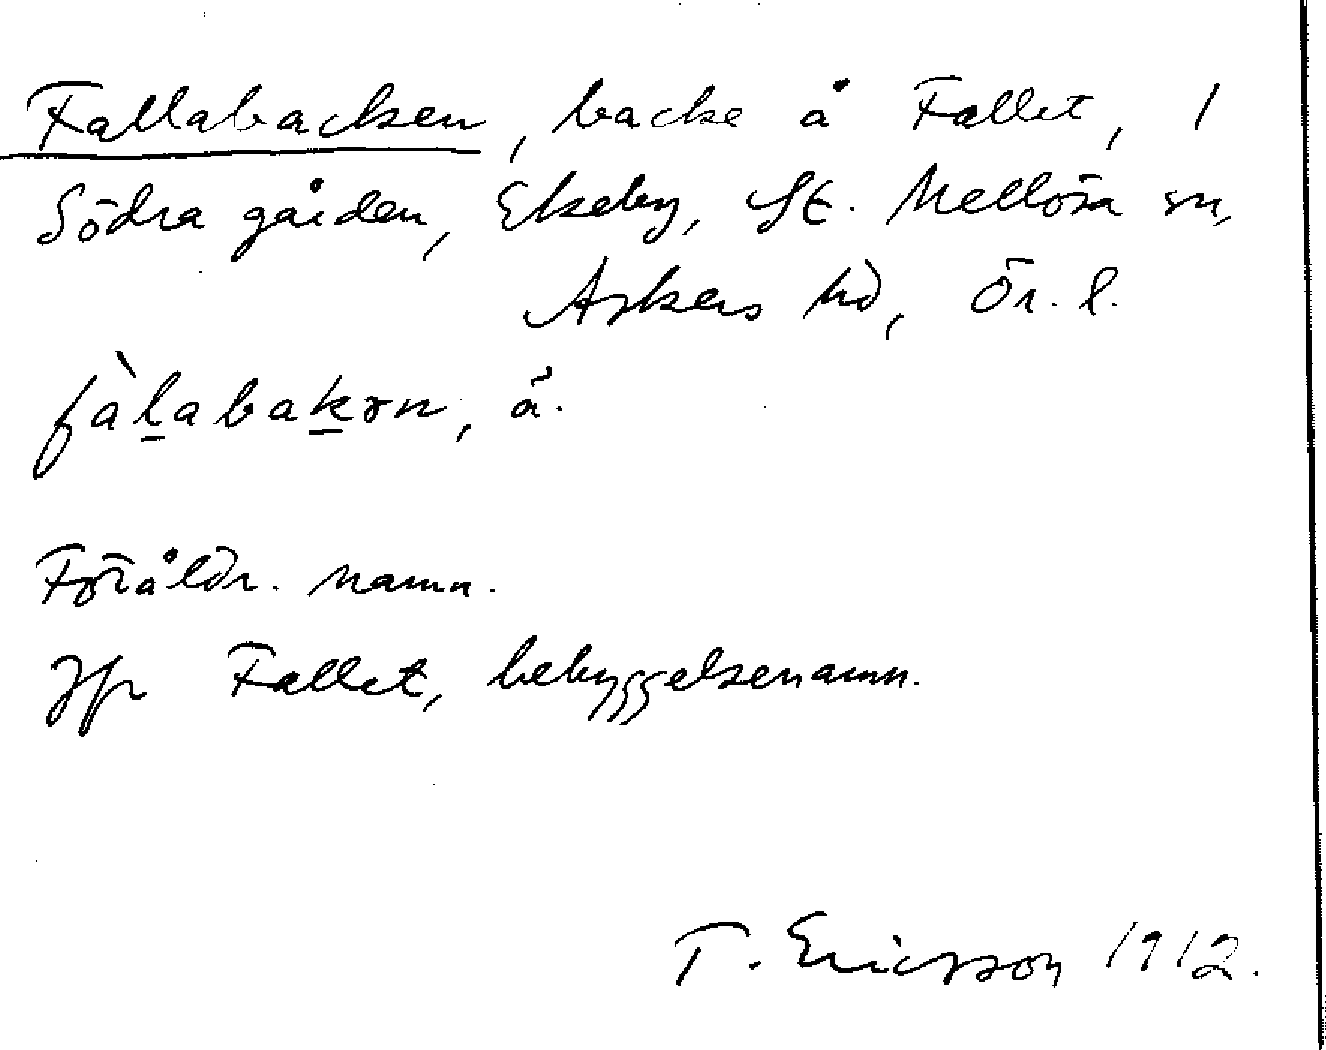 Fallabacken, backe å Fallet, 1
Södra gården, Ekeby, St. Mellösa sn,
Askers hd, Ör. l.
fàlabakən, å̃.
Föråldr. namn.
Jfr Fallet, bebyggelsenamn.
T. Ericsson 1912.